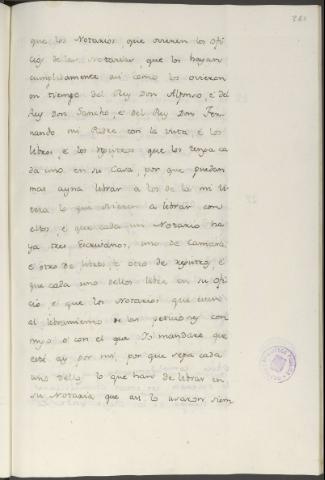 que los Notarios, que ovieren los ofi
cios de las Notarias, que los hayan
cumplidamente asi como los ovieron
en tiempo del Rey Don Alfonso, é del
Rey Don Sancho, é del Rey Don Fer-
nando mi Padre con la vista, é los
libros, é los registros que los tenga ca
da uno en su Casa, por que puedan
mas ayna librar a los de la mi ti
erra lo que ovieren a librar con
ellos, é que cada un Notario ha
ya tres Escribanos, uno de Camara
é otro de libros, é otro de registro, é
que cada uno dellos libre en su ofi
cio é que los Notarios que
el libramiento de las peticiones con
migo ó con el que Yo mandare que
esté ay por mi, por que sepa cada
uno dellos lo que han de librar en
su Notaria que asi lo usaron siem